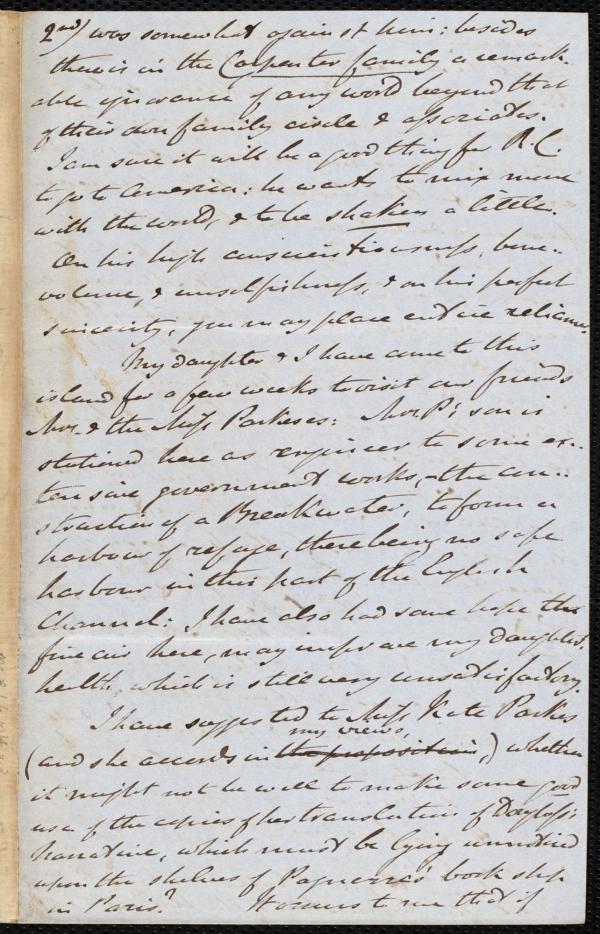 2nd) was somewhat against him: besides
there is in the Carpenter family a remark-
able ignorance of any world beyond that
of their own family circle & associates.
I am sure it will be a good thing for R.C.
to go to America: he wants to mix more
with the world, & to be shaken a little.
On his high conscientiousness, bene-
volence, & unselfishness, & on his perfect
sincerity, you may place entire reliance.
My daughter & I have come to this
island for a few weeks to visit our friends
Mrs. & the Miss Parkeses: Mrs. P's son is
stationed here as engineer to some ex-
tensive government works,—the con-
struction of a Breakwater, to form a
harbour of refuge, there being no safe
harbour in this part of the English
Channel: I have also had some hope the
fine air here, may improve my daughter's
health, which is still very unsatisfactory.
I have suggested to Miss Kate Parkes
my views,
(and she accords in the proposition,) whether
it might not be well to make some good
use of the copies of her translation of Douglass's
narrative, which must be lying unnoticed
upon the shelves of Pagnerre's book shop
in Paris? It occurs to me that if